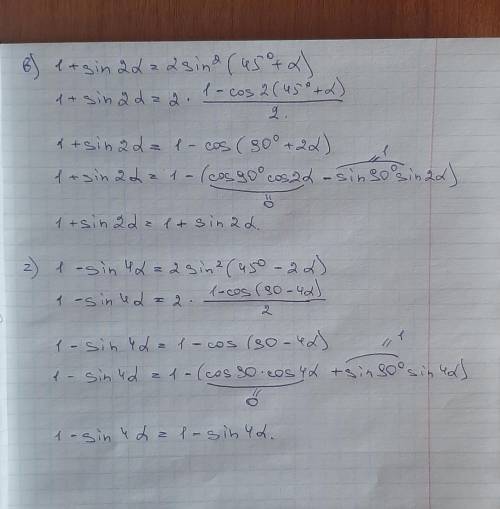 в) 1 + sin 2α = 2 sin² (45° + α)
1 + sin 2α = 2 · (1 - cos 2(45° + α)) / 2.
1 + sin 2α = 1 - cos (90° + 2α)
1 + sin 2α = 1 - (cos 90° cos 2α - sin 90° sin 2α)
0 1
1 + sin 2α = 1 + sin 2α.
г) 1 - sin 4α = 2 sin² (45° - 2α)
1 - sin 4α = 2 · (1 - cos (90 - 4α)) / 2
1 - sin 4α = 1 - cos (90 - 4α)
1 - sin 4α = 1 - (cos 90 · cos 4α + sin 90° sin 4α)
0 1
1 - sin 4α = 1 - sin 4α.